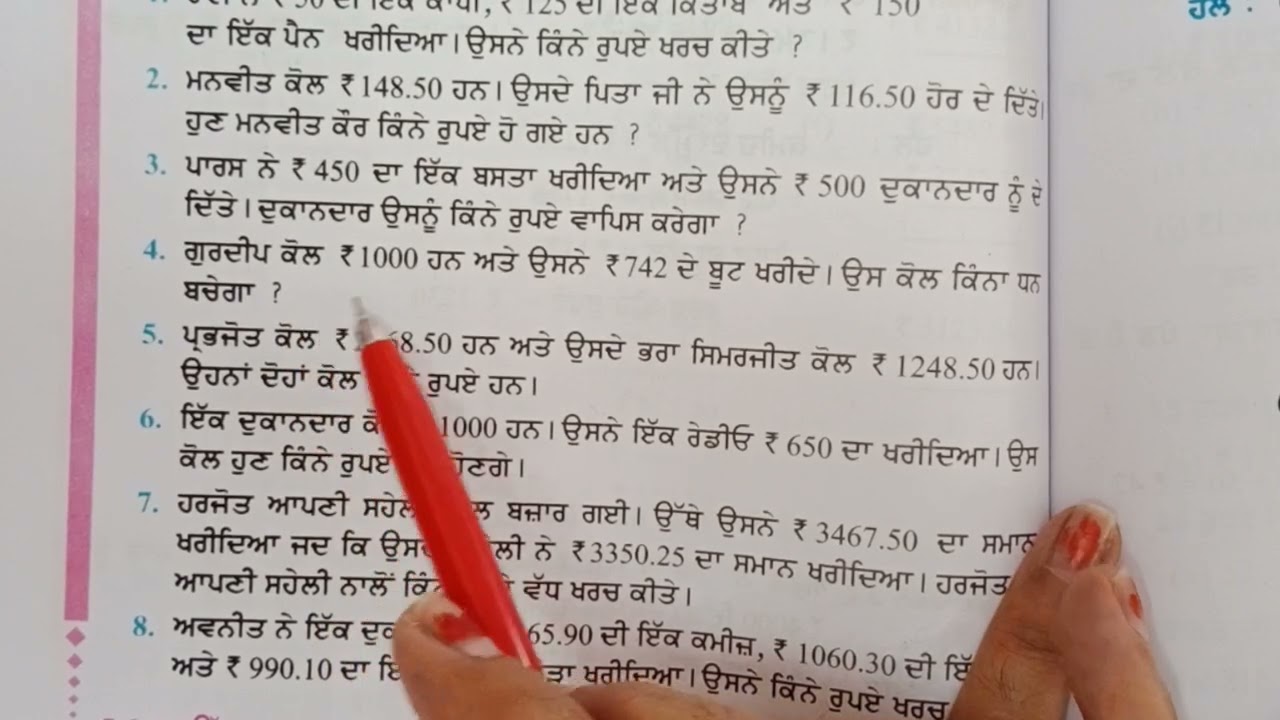 ₹ 50 ਦੀ ਇੱਕ ਕਾਪੀ, ₹ 125 ਦੀ ਇੱਕ ਕਿਤਾਬ ਅਤੇ ₹ 150
ਹਲ :
ਦਾ ਇੱਕ ਪੈਨ ਖਰੀਦਿਆ। ਉਸਨੇ ਕਿੰਨੇ ਰੁਪਏ ਖਰਚ ਕੀਤੇ ?
2. ਮਨਵੀਤ ਕੋਲ ₹ 148.50 ਹਨ। ਉਸਦੇ ਪਿਤਾ ਜੀ ਨੇ ਉਸਨੂੰ ₹ 116.50 ਹੋਰ ਦੇ ਦਿੱਤੇ।
ਹੁਣ ਮਨਵੀਤ ਕੌਰ ਕਿੰਨੇ ਰੁਪਏ ਹੋ ਗਏ ਹਨ ?
3. ਪਾਰਸ ਨੇ ₹ 450 ਦਾ ਇੱਕ ਬਸਤਾ ਖਰੀਦਿਆ ਅਤੇ ਉਸਨੇ ₹ 500 ਦੁਕਾਨਦਾਰ ਨੂੰ ਦੇ
ਦਿੱਤੇ। ਦੁਕਾਨਦਾਰ ਉਸਨੂੰ ਕਿੰਨੇ ਰੁਪਏ ਵਾਪਿਸ ਕਰੇਗਾ ?
4. ਗੁਰਦੀਪ ਕੋਲ ₹ 1000 ਹਨ ਅਤੇ ਉਸਨੇ ₹ 742 ਦੇ ਬੂਟ ਖਰੀਦੇ। ਉਸ ਕੋਲ ਕਿੰਨਾ ਧਨ
ਬਚੇਗਾ ?
5. ਪ੍ਰਭਜੋਤ ਕੋਲ ₹ 68.50 ਹਨ ਅਤੇ ਉਸਦੇ ਭਰਾ ਸਿਮਰਜੀਤ ਕੋਲ ₹ 1248.50 ਹਨ।
ਉਹਨਾਂ ਦੋਹਾਂ ਕੋਲ ਰੁਪਏ ਹਨ।
6. ਇੱਕ ਦੁਕਾਨਦਾਰ 1000 ਹਨ। ਉਸਨੇ ਇੱਕ ਰੇਡੀਓ ₹ 650 ਦਾ ਖਰੀਦਿਆ। ਉਸ
ਕੋਲ ਹੁਣ ਕਿੰਨੇ ਰੁਪਏ ਹੋਣਗੇ।
7. ਹਰਜੋਤ ਆਪਣੀ ਬਜ਼ਾਰ ਗਈ। ਉੱਥੇ ਉਸਨੇ ₹ 3467.50 ਦਾ ਸਮਾਨ
ਖਰੀਦਿਆ ਜਦ ਕਿ ਨੇ ₹ 3350.25 ਦਾ ਸਮਾਨ ਖਰੀਦਿਆ। ਹਰਜੋਤ
ਆਪਣੀ ਸਹੇਲੀ ਨਾਲੋਂ ਵੱਧ ਖਰਚ ਕੀਤੇ।
8. ਅਵਨੀਤ ਨੇ ਇੱਕ 65.90 ਦੀ ਇੱਕ ਕਮੀਜ਼, ₹ 1060.30 ਦੀ
ਅਤੇ ₹ 990.10 ਦਾ ਖਰੀਦਿਆ। ਉਸਨੇ ਕਿੰਨੇ ਰੁਪਏ ਖਰਚ